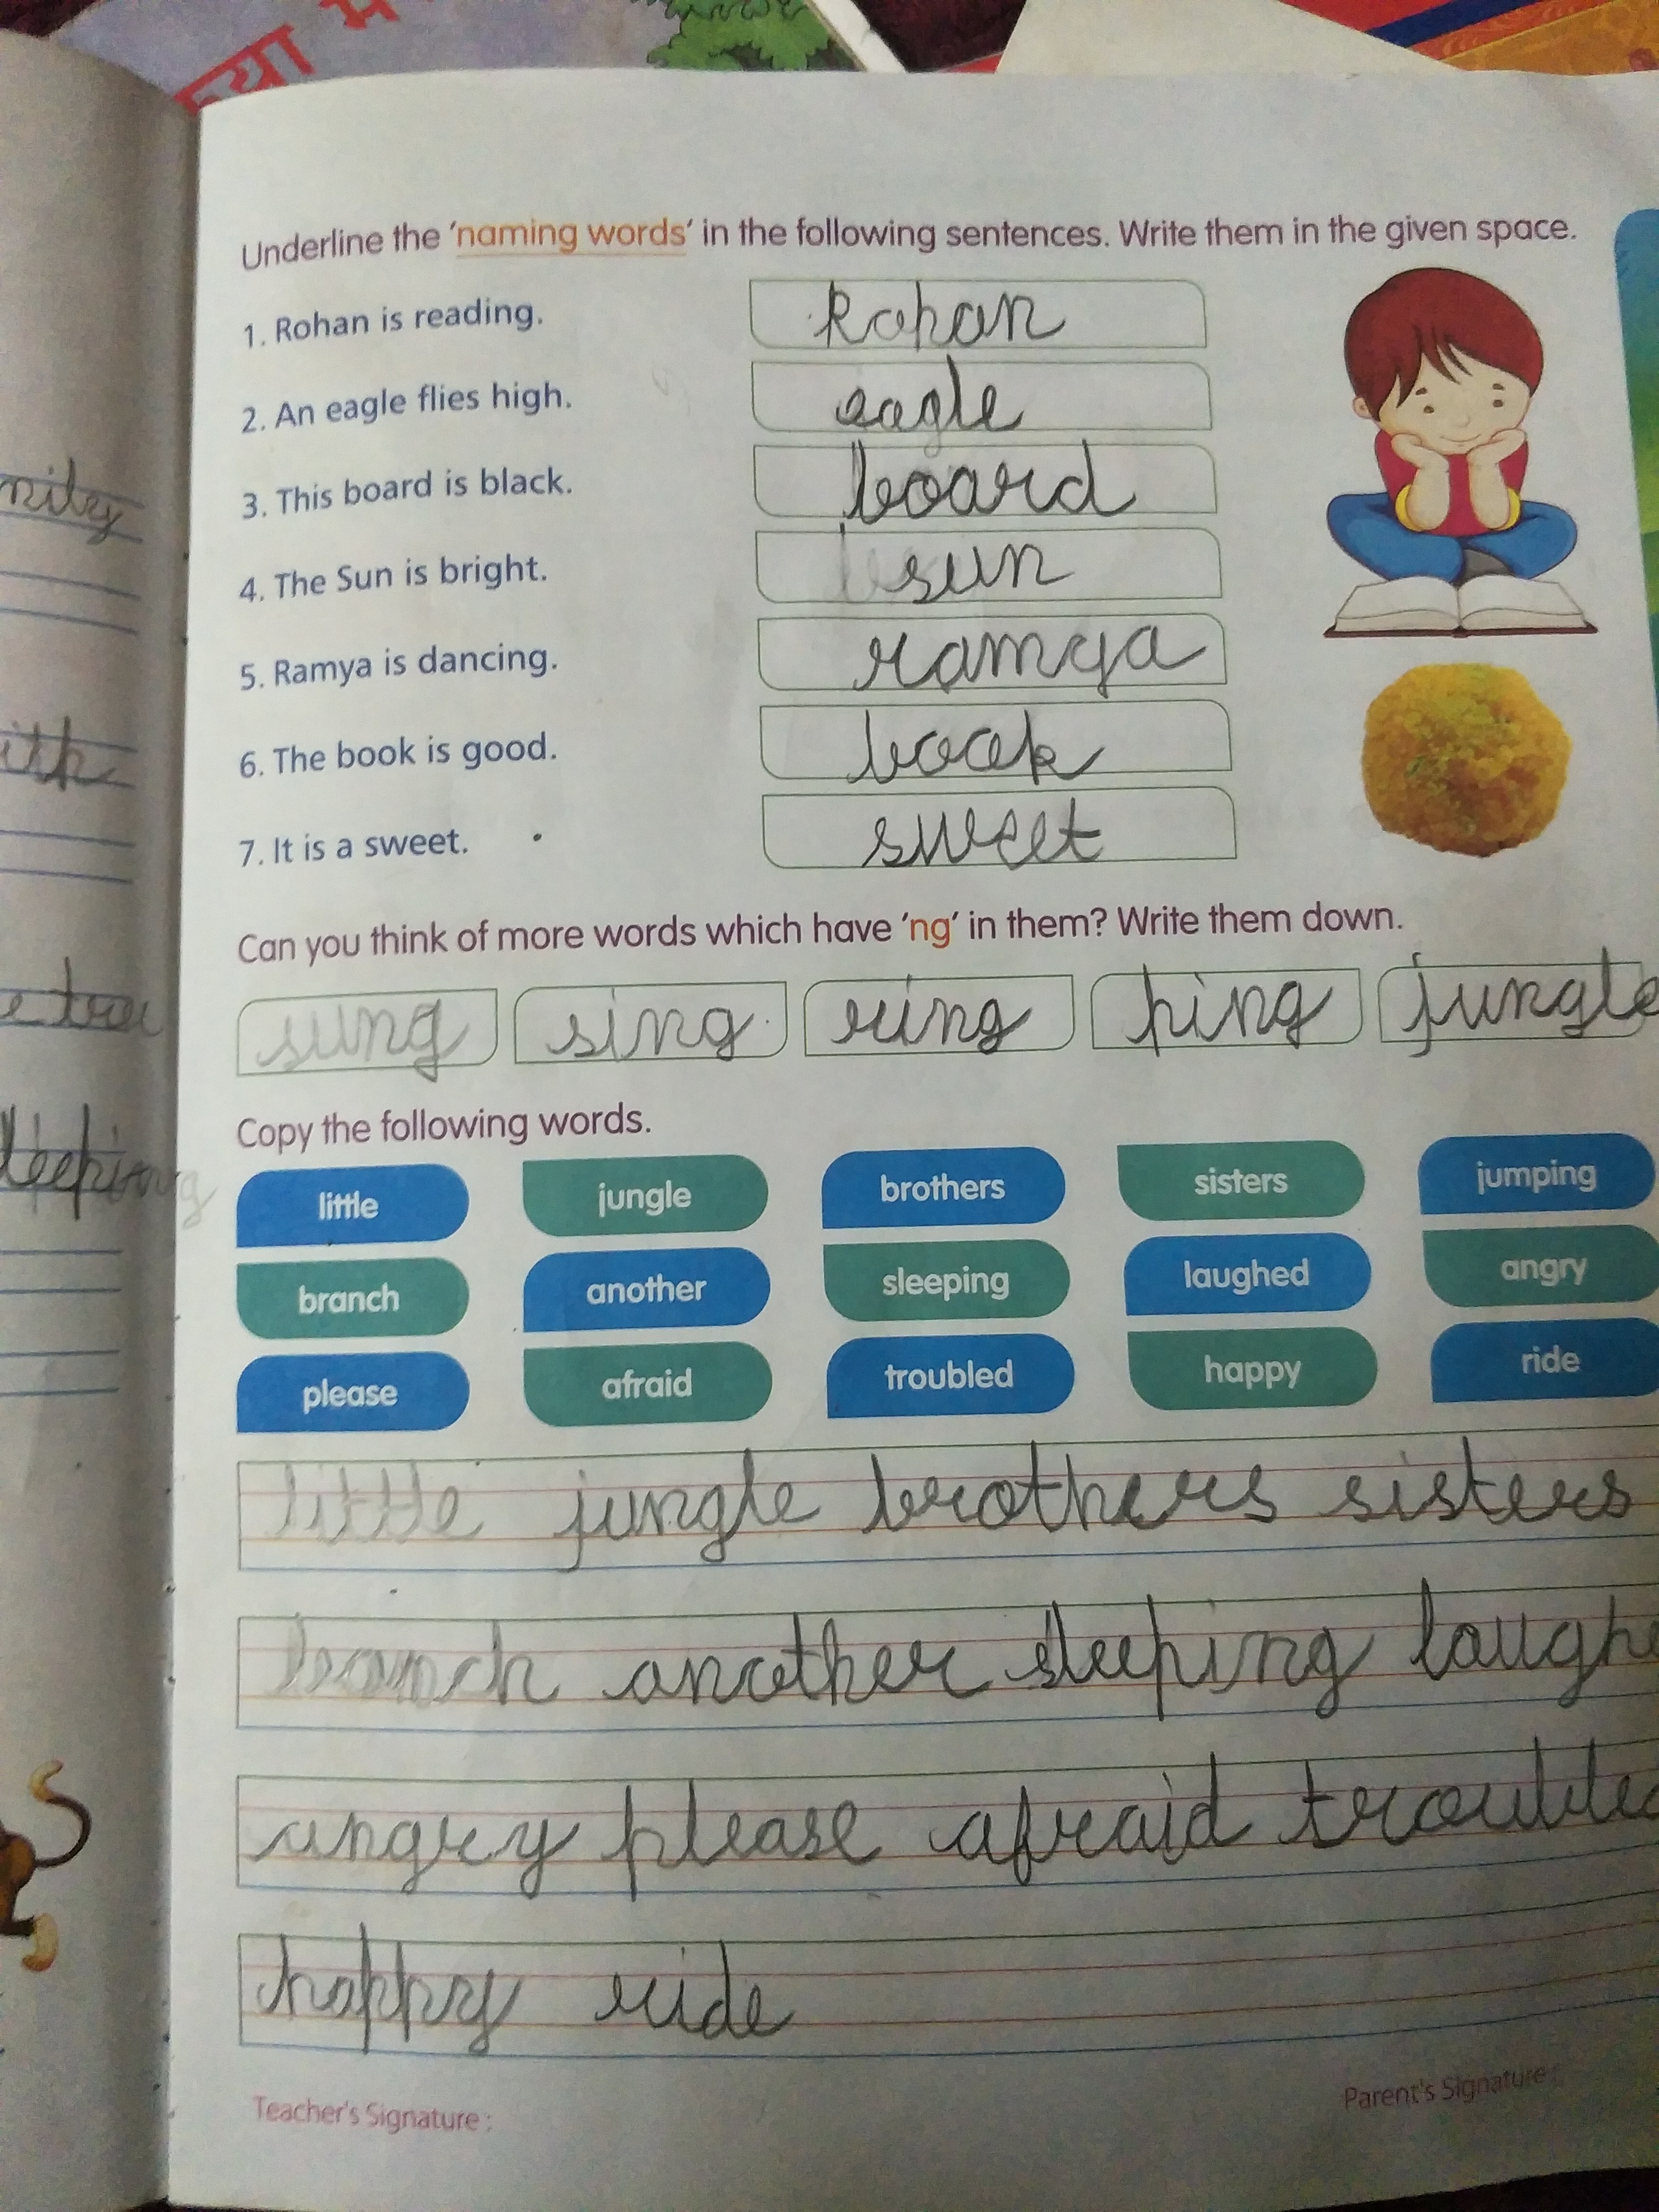 Underline the 'naming words' in the following sentences. Write them in the given space.
1. Rohan is reading. Rohan
2. An eagle flies high. eagle
3. This board is black. board
4. The Sun is bright. sun
5. Ramya is dancing. ramya
6. The book is good. book
7. It is a sweet. sweet
Can you think of more words which have 'ng' in them? Write them down.
sung sing ring ping jungle
Copy the following words.
little jungle brothers sisters jumping
branch another sleeping laughed angry
please afraid troubled happy ride
little jungle brothers sisters
another sleeping laughe
angry please afraid trouble
happy ride
Teacher's Signature : Parent's Signature :